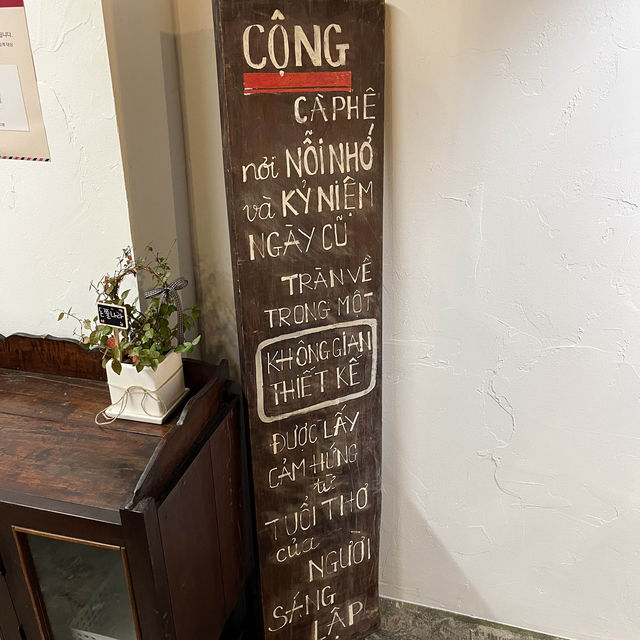 CỘNG
CÀ PHÊ
nơi NỖI NHỚ
và KỶ NIỆM
NGÀY CŨ
TRÀN VỀ
TRONG MỘT
KHÔNG GIAN
THIẾT KẾ
ĐƯỢC LẤY
CẢM HỨNG
từ
TUỔI THƠ
của
NGƯỜI
SÁNG
LẬP